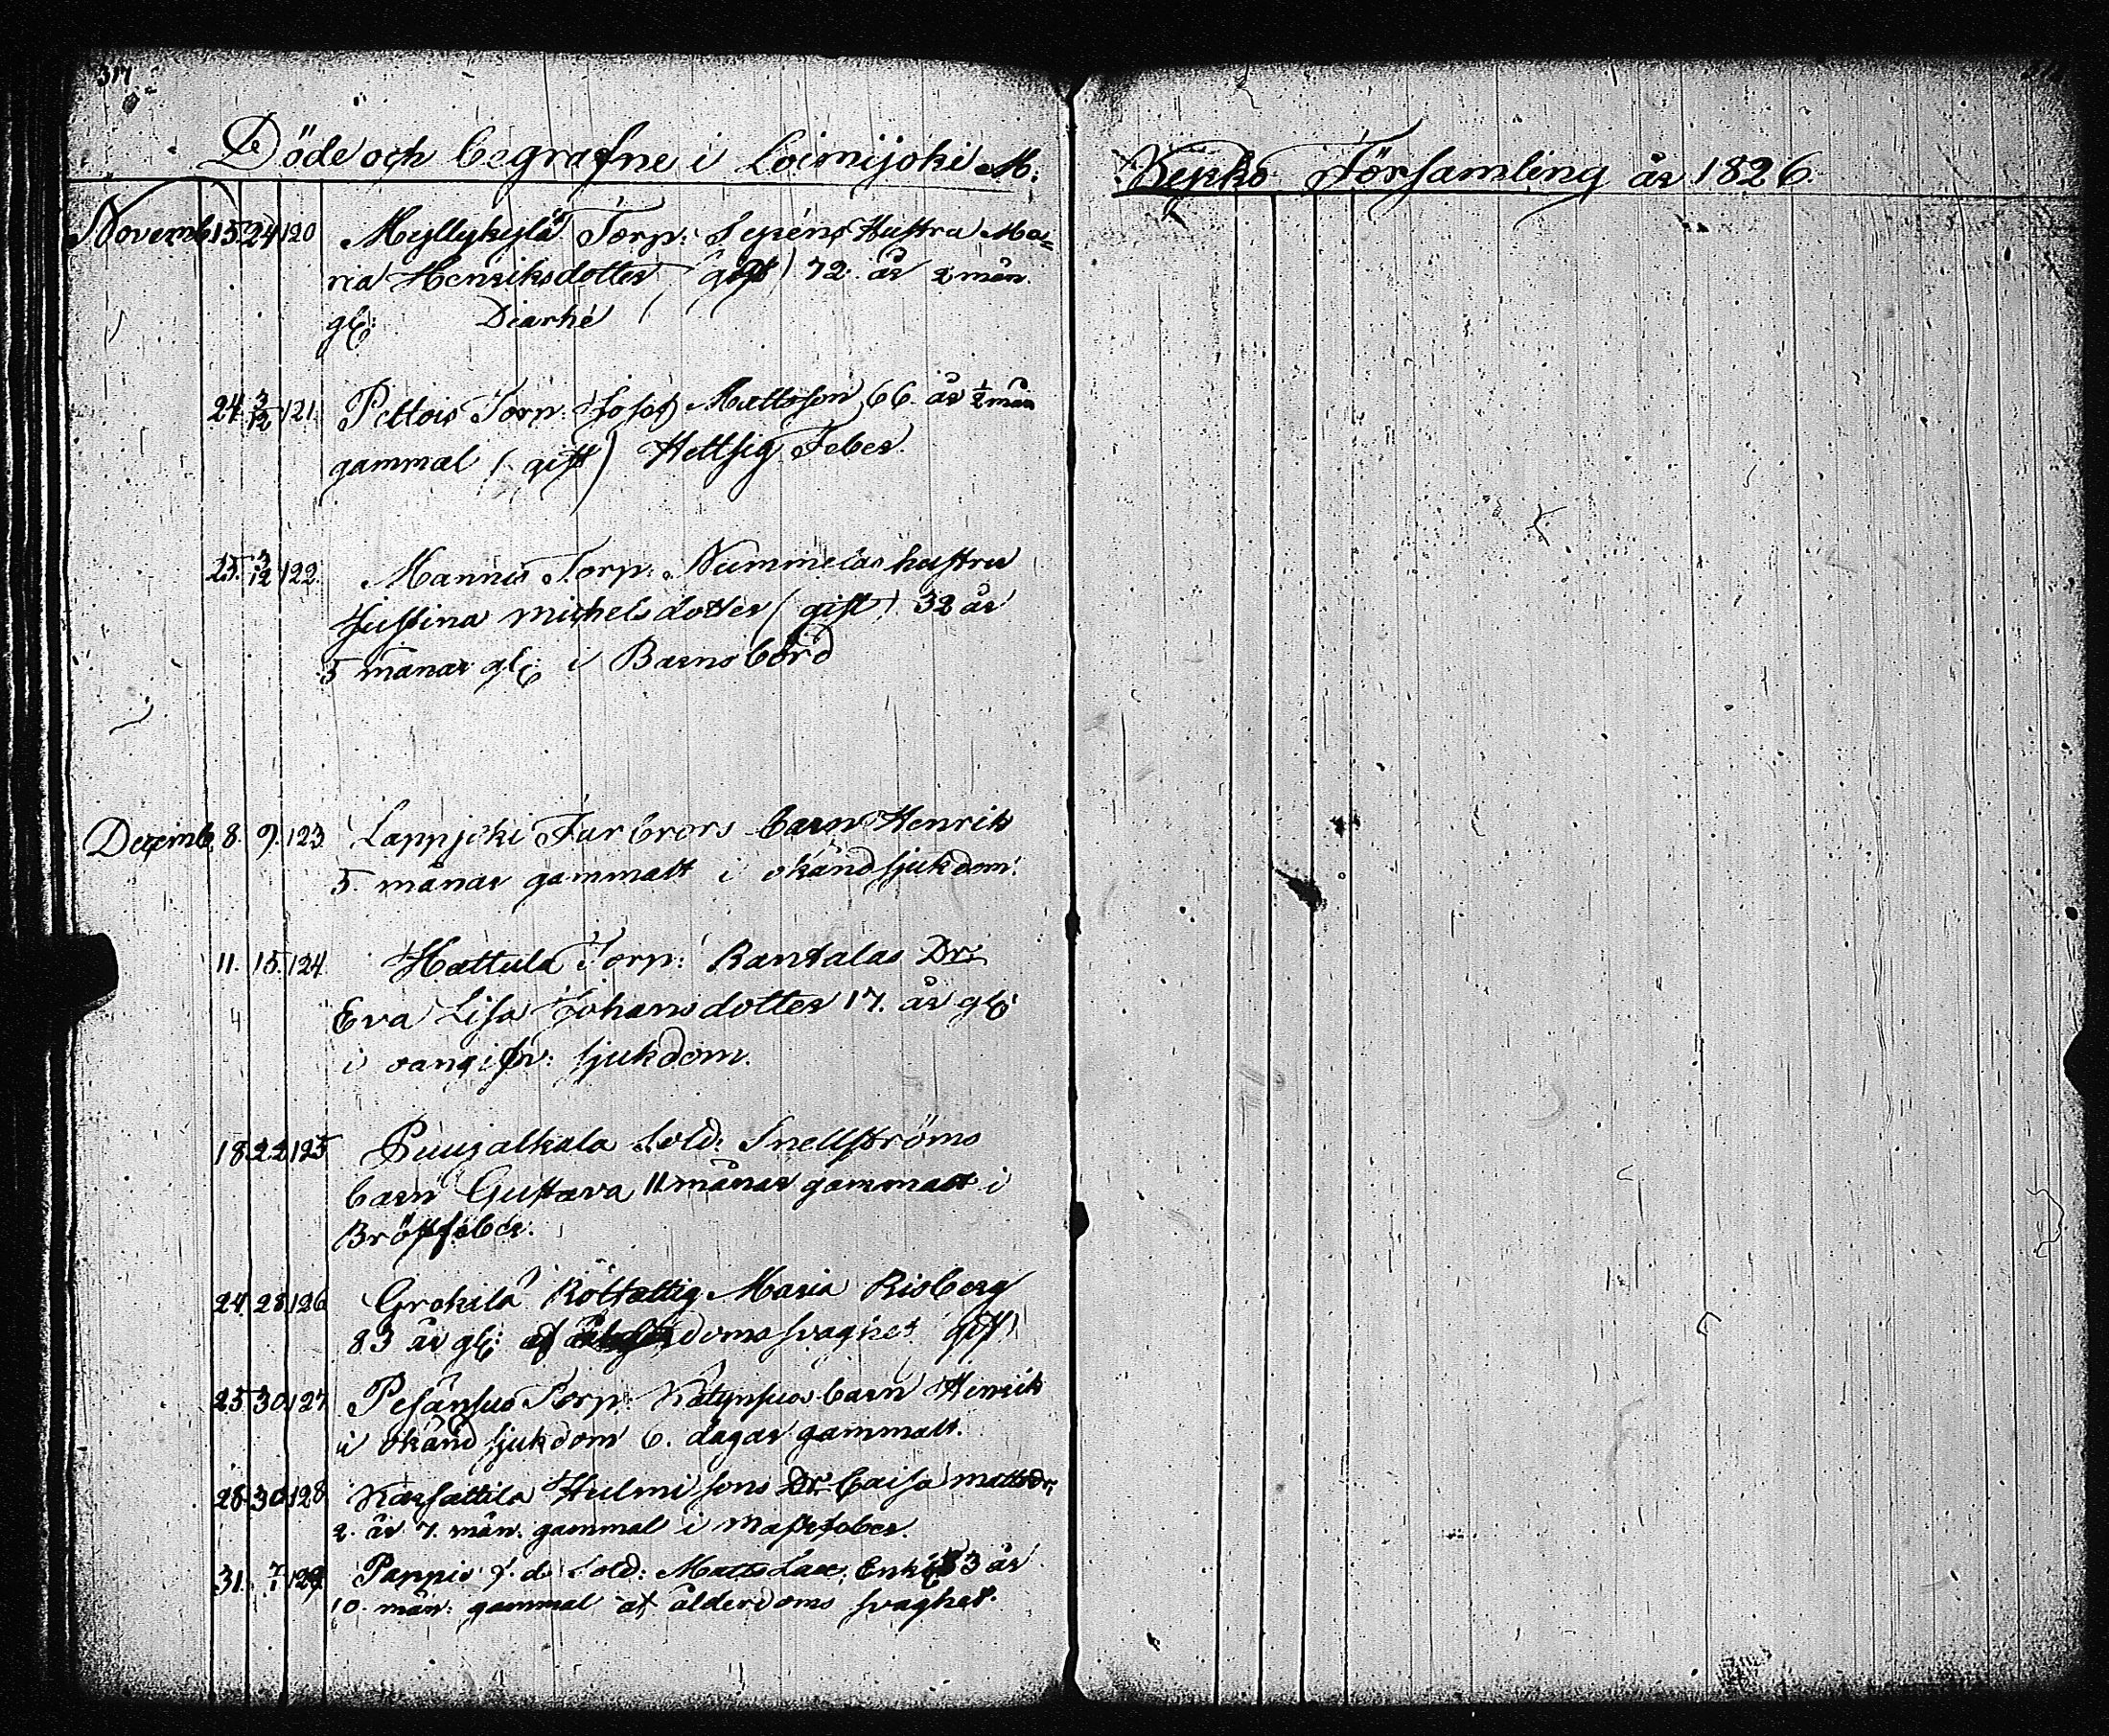 317
Döde och begrafne i Loimijoki M. Kyrko Församling år 1826.
Novemb 15 24 120 Myllykylä Torp: Sepéns Hustru Ma=
ria Henriksdotter (gift) 72 år 2 mån.
gl: Diarhé
24. 3/12 121. Pellois Torp: Josef Mattsson 66. år 1/2 mån
gammal (gift) Hettsig Feber.
25. 3/12 122. Mannis Torp: Nummelas hustru
Justina Michelsdotter (gift) 32 år
5 månar gl: i Barnsbörd
Decemb 8. 9. 123 Lappjoki Farbrors barn Henrik
5. månar gammalt i okänd sjukdom.
11. 15. 124. Hattula Torp: Rantalas Dr:
Eva Lisa Johansdotter 17. år gl:
i oangifn: sjukdom.
18. 22. 125 Puujalkala Sold: Snellströms
barn Gustava 11 månar gammalt i
Bröstfeber.
24. 28. 126 Maria Risberg
83 år gl: af doms svaghet gift)
25. 30. 127 Torp: barn Henrik
i okänd sjukdom 6. dagar gammalt.
28. 30. 128 sons Dr: Caisa Mattsdr:
2. år 7. mån. gammal i
31. 7/1 129. Pappis f. d. Sold: Matts Enka 83 år
10. mån: gammal af ålderdoms svaghet.